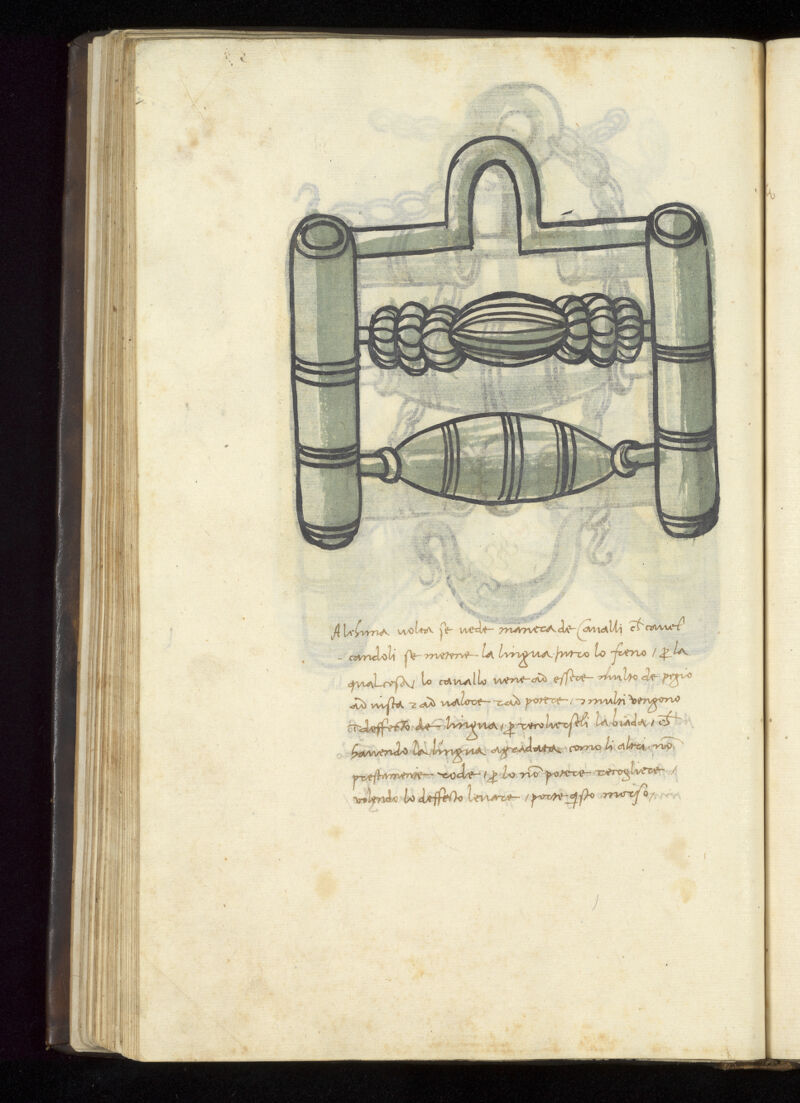 Alchuna volta se vede manera de Cavalli ch cavel
candoli se metene la lingua intro lo freno / p la
qual cosa / lo cavallo vene ad essere multo de pigio
ad vista z ad valore z ad potere / z multi vengono
deffecto de lingua / p recolierseli la biada / ch
havendo la lingua agradata como li altri no
prestamente rode / p lo no potere recogliere
volendo lo deffecto levare / porte qisto morso